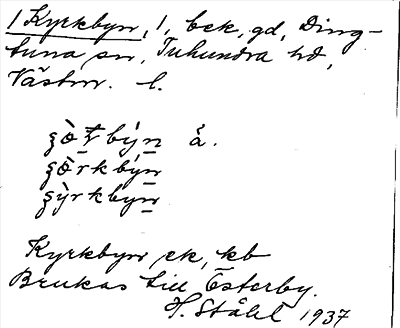 1 Kyrkbyn, l, bek, gd, Ding-
tuna sn, Tuhundra hd,
Västm. l.
şò̱ṯbýn̲ å.
şò̱rkbýn̲
şỳrkbýn̲
Kyrkbyn ek, kb
Brukas till Österby.
H. Ståhl 1937